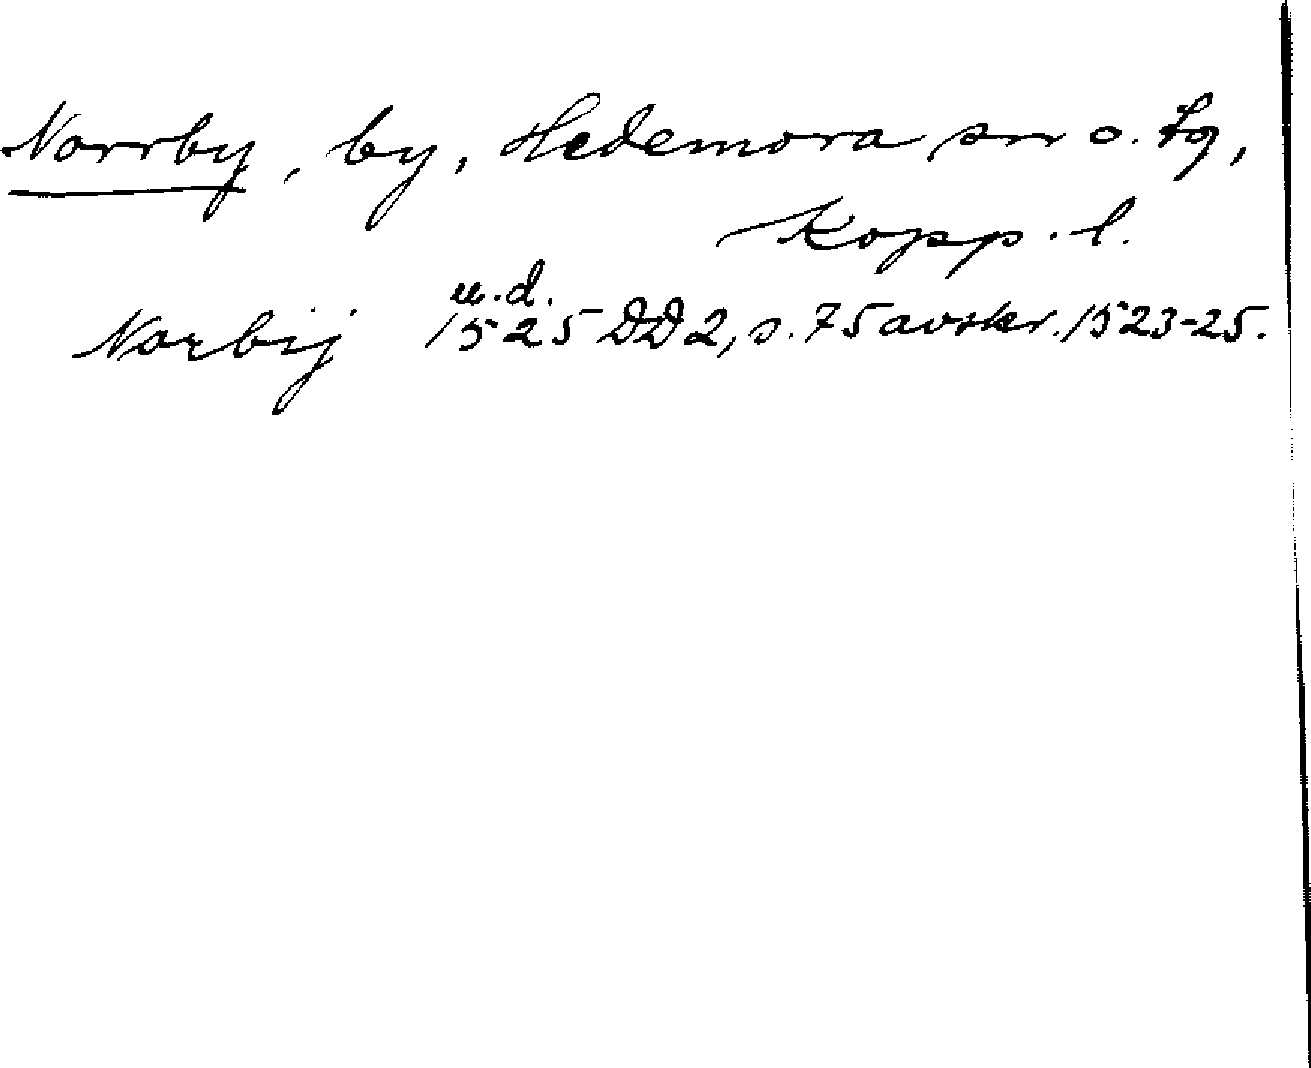 Norrby, by, Hedemora sn o. tg,
Kopp. l.
u.d.
Norbij 1525 DD2, s. 75 avskr. 1523-25.